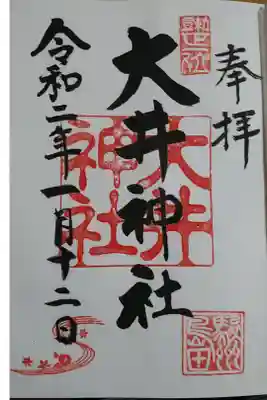 奉拝
大井神社
大井
神社
令和二年一月十二日